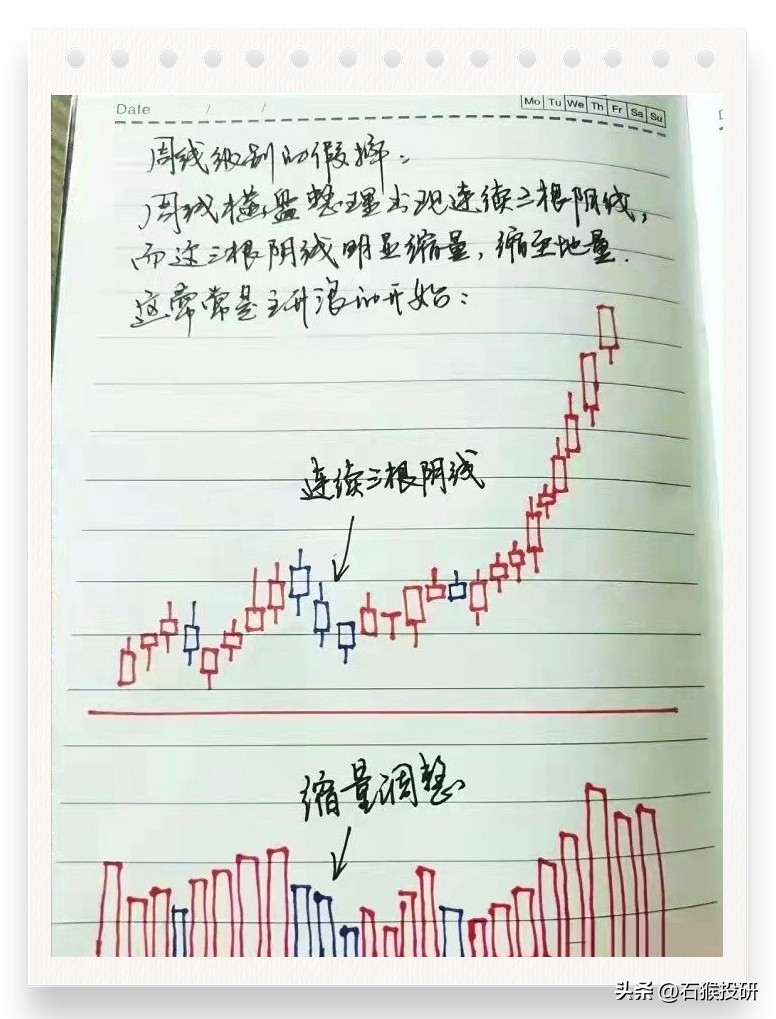 Date / /
Mo Tu We Th Fr Sa Su
周线级别的假摔：
周线横盘整理出现连续三根阴线，
而这三根阴线明显缩量，缩至地量．
这常常是主升浪的开始：
连续三根阴线
缩量调整
头条 @石猴投研